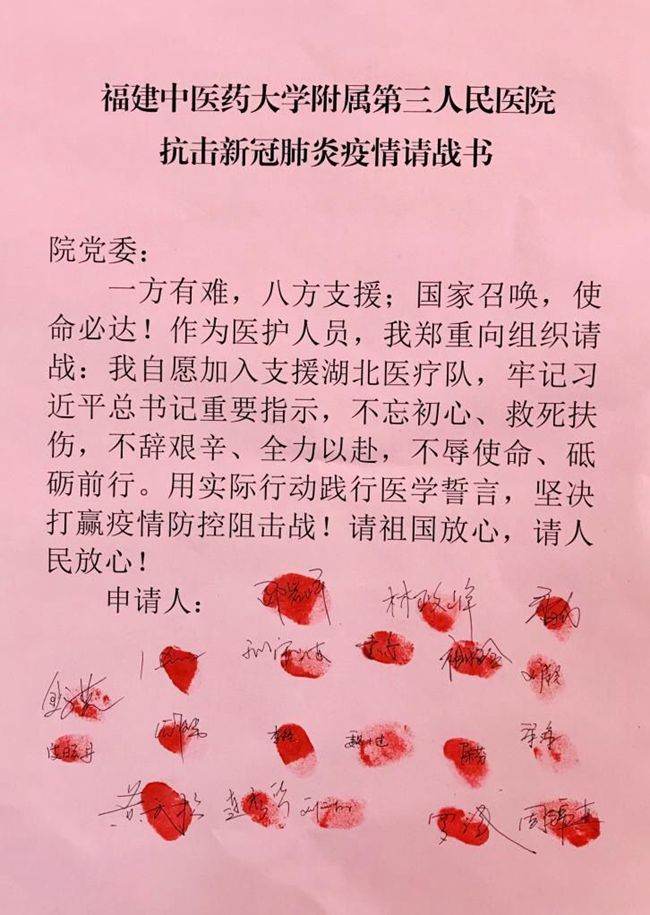 福建中医药大学附属第三人民医院
抗击新冠肺炎疫情请战书
院党委：
一方有难，八方支援；国家召唤，使
命必达！作为医护人员，我郑重向组织请
战：我自愿加入支援湖北医疗队，牢记习
近平总书记重要指示，不忘初心、救死扶
伤，不辞艰辛、全力以赴，不辱使命、砥
砺前行。用实际行动践行医学誓言，坚决
打赢疫情防控阻击战！请祖国放心，请人
民放心！
申请人：
林政峰